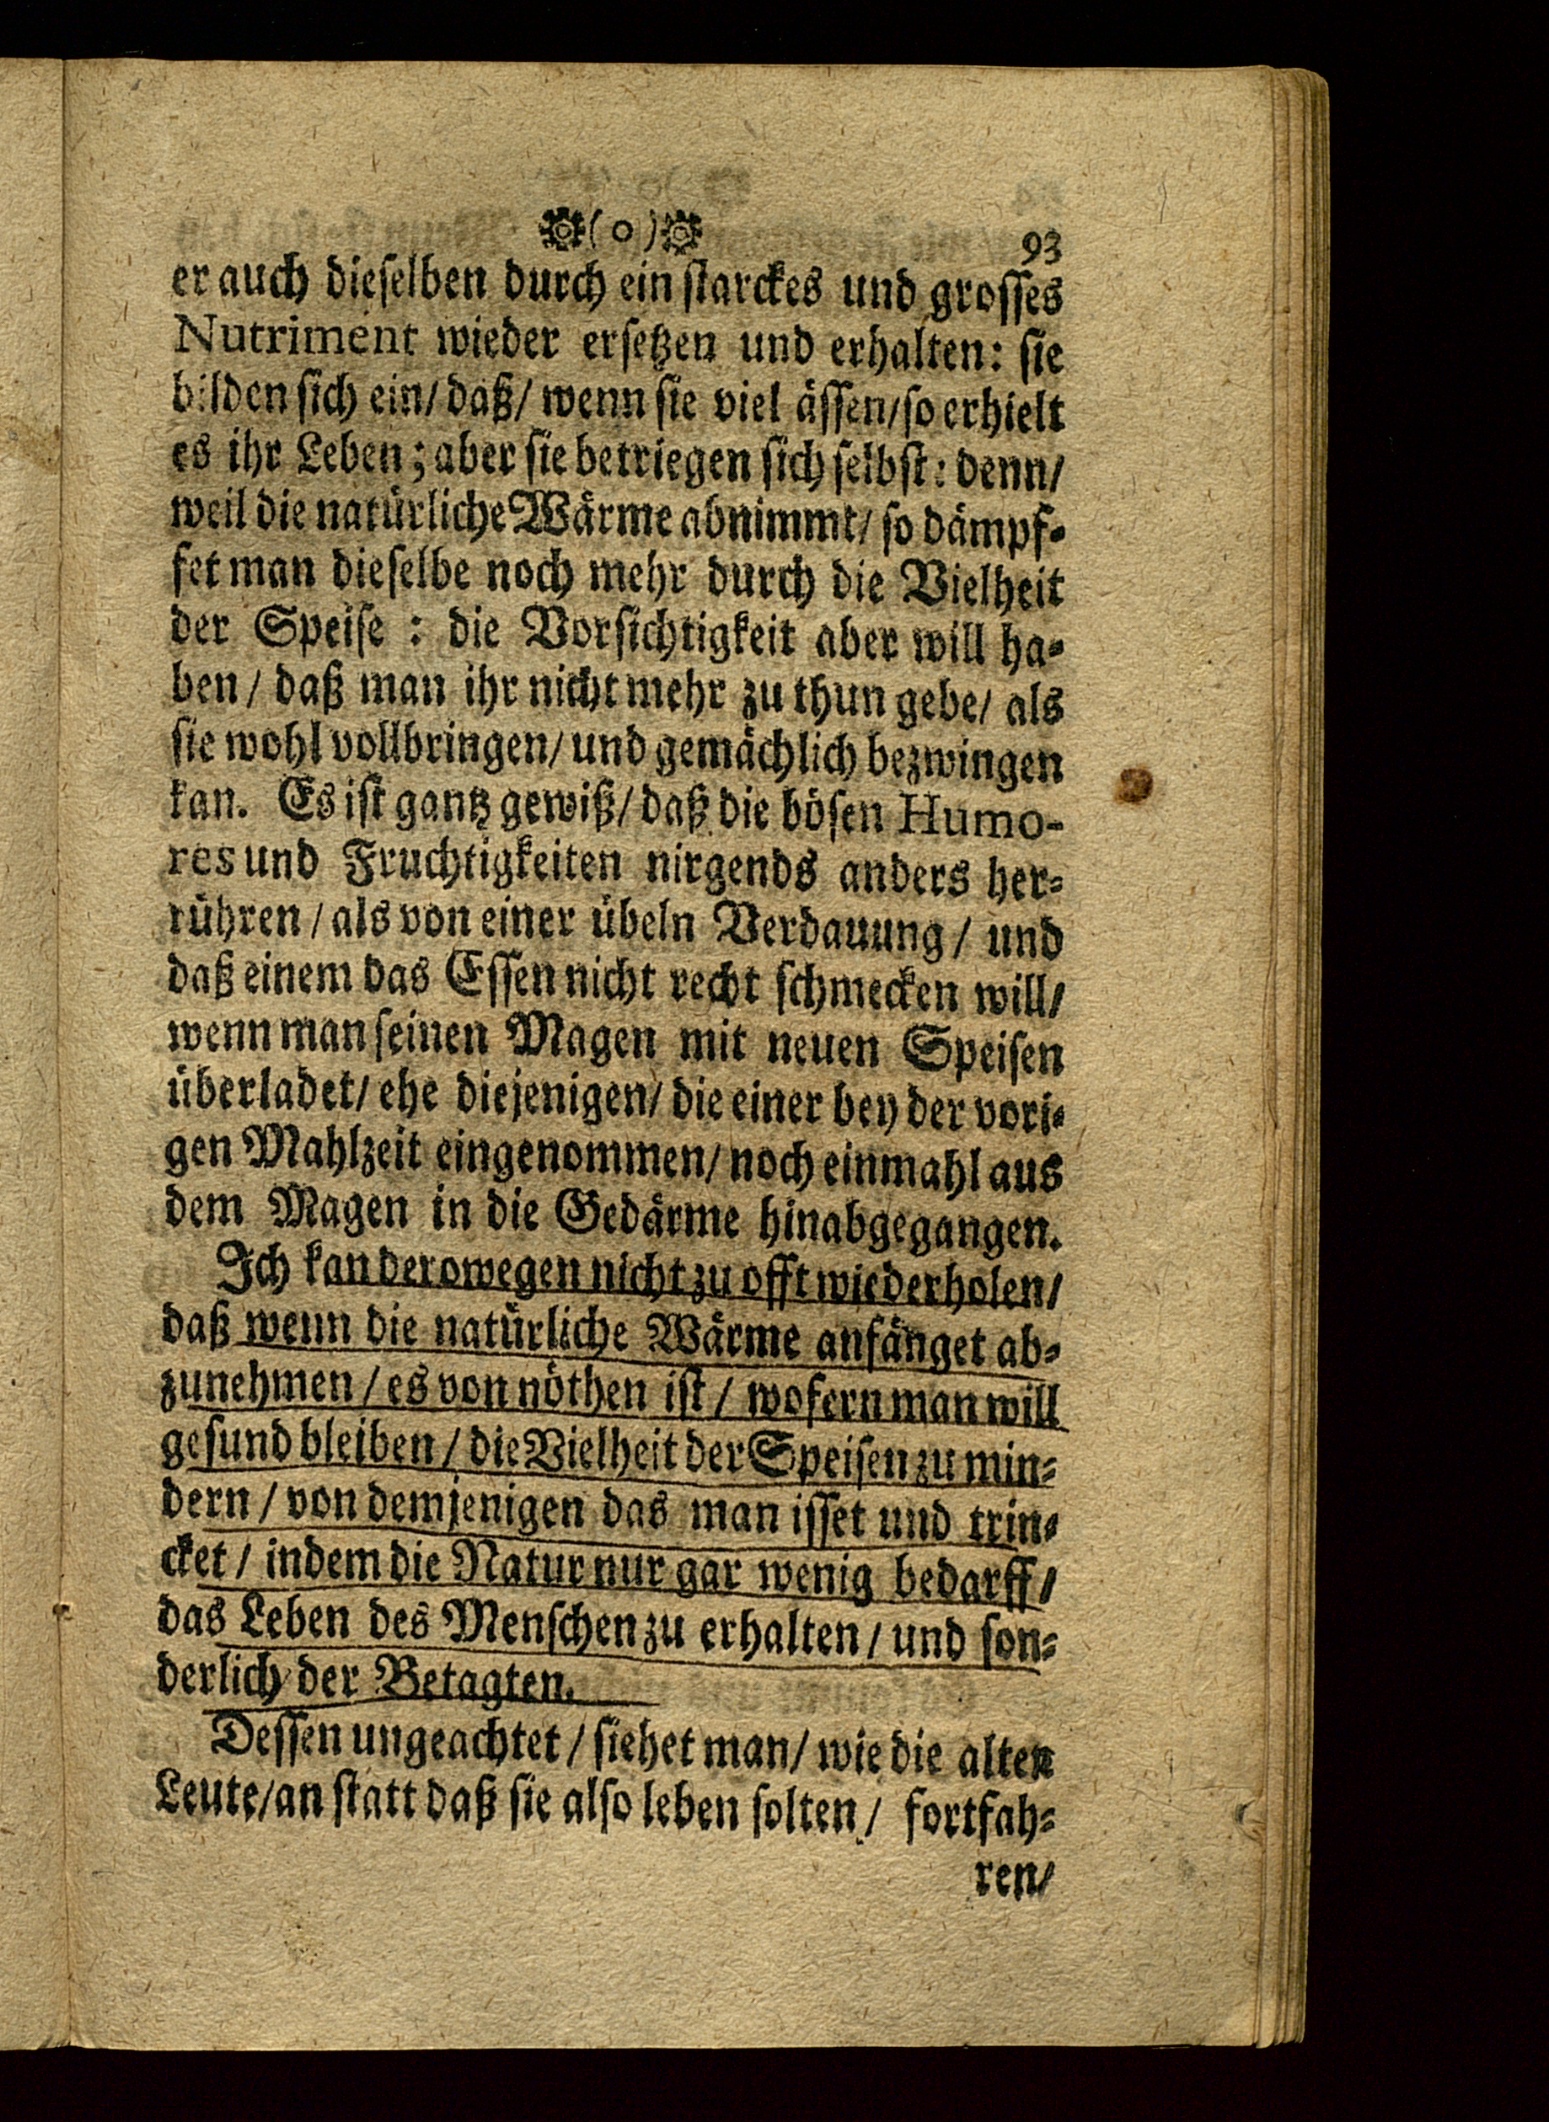 (o)
93
er auch dieselben durch ein starckes und grosses
Nutriment wieder ersetzen und erhalten: sie
bilden sich ein/ daß/ wenn sie viel ässen/ so erhielt
es ihr Leben; aber sie betriegen sich selbst: denn/
weil die natürliche Wärme abnimmt/ so dämpf-
fet man dieselbe noch mehr durch die Vielheit
der Speise : die Vorsichtigkeit aber will ha-
ben / daß man ihr nicht mehr zu thun gebe/ als
sie wohl vollbringen/ und gemächlich bezwingen
kan. Es ist gantz gewiß/ daß die bösen Humo-
res und Fruchtigkeiten nirgends anders her-
rühren / als von einer übeln Verdauung / und
daß einem das Essen nicht recht schmecken will/
wenn man seinen Magen mit neuen Speisen
überladet/ ehe diejenigen/ die einer bey der vori-
gen Mahlzeit eingenommen/ noch einmahl aus
dem Magen in die Gedärme hinabgegangen.
Ich kan derowegen nicht zu offt wiederholen/
daß wenn die natürliche Wärme anfänget ab-
zunehmen / es von nöthen ist / wofern man will
gesund bleiben / die Vielheit der Speisen zu min-
dern / von demjenigen das man isset und trin-
cket / indem die Natur nur gar wenig bedarff/
das Leben des Menschen zu erhalten / und son-
derlich der Betagten.
Dessen ungeachtet / siehet man/ wie die alten
Leute/ an statt daß sie also leben solten / fortfah-
ren/